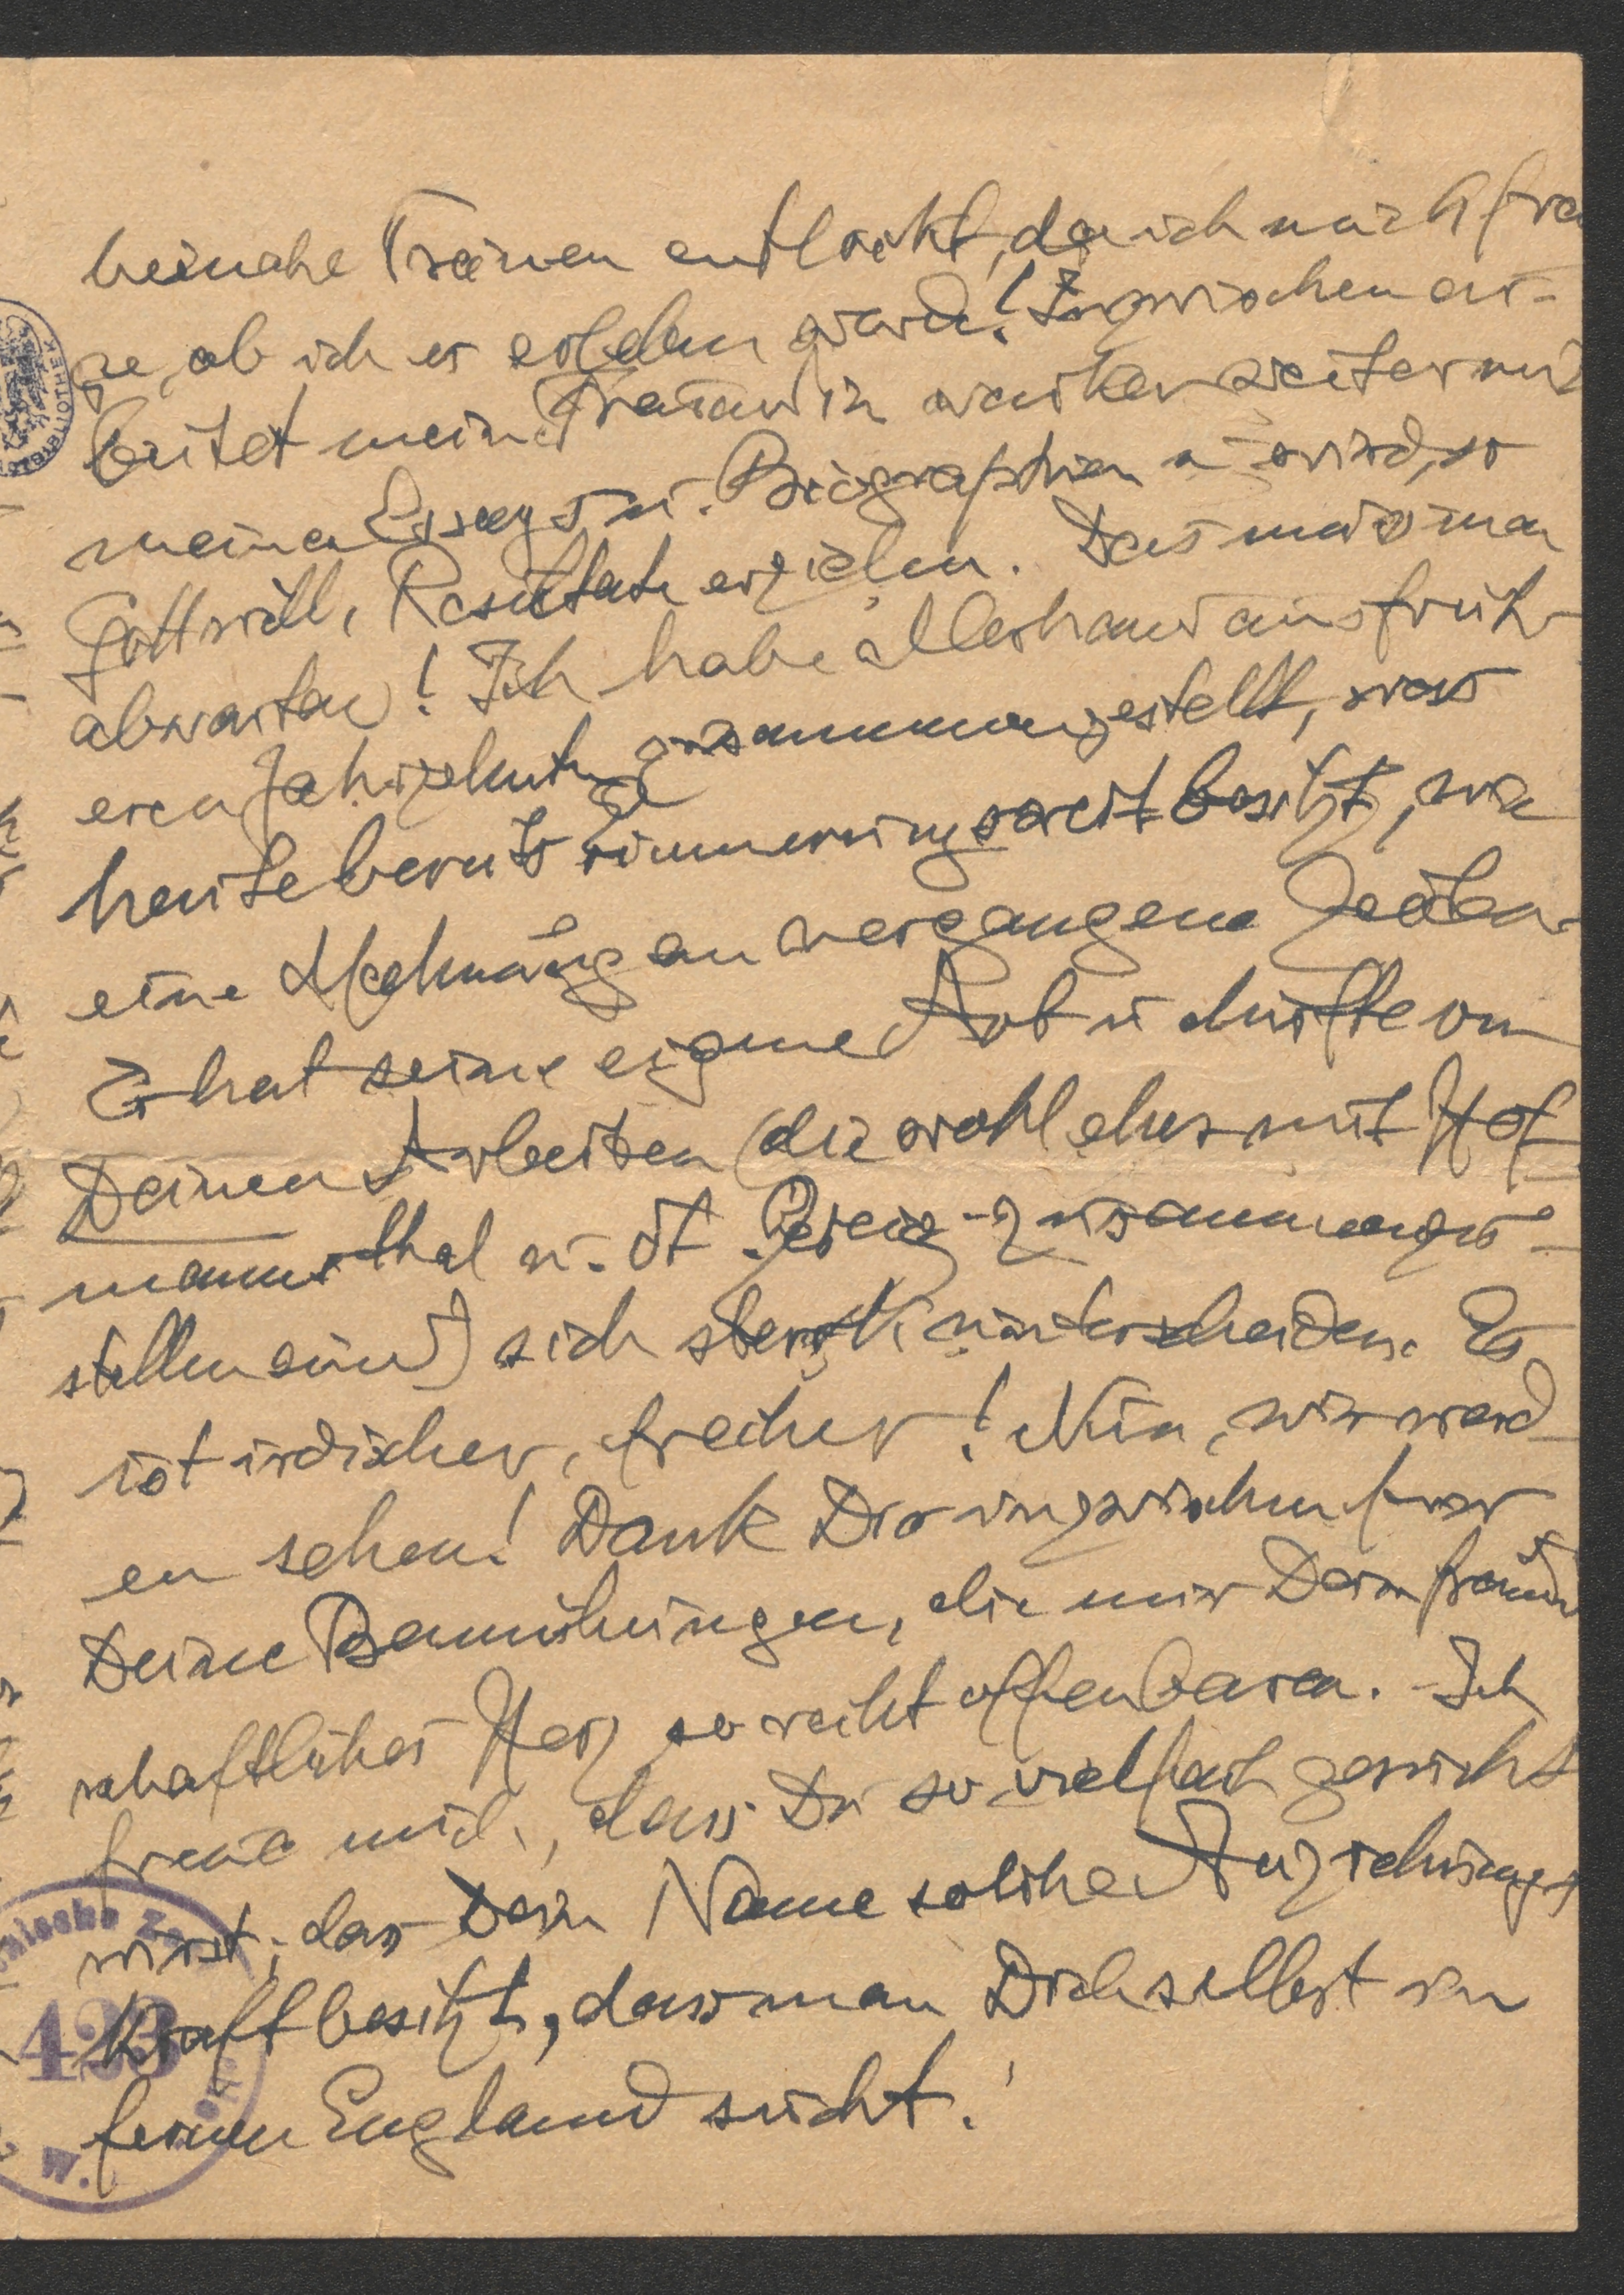 beinahe Tränen entlockt, da ich mich fra
ge, ob ich es erleben werde! Inzwischen ar-
beitet meine Freundin wacker weiter mit
meinen Essays u. Biographien u. wird, so
Gott will, Resultate erzielen. Das muss man
abwarten! Ich habe allerhand aus früh-
eren Jahrzehnten zusammengestellt, was
heute bereits Erinnerungswert besitzt, wie
eine Mahnung an vergangene Zeiten.
Es hat seine eigene Art u dürfte von
Deinen Arbeiten (die wohl eher mit Hof-
mannsthal u. zusammenzu-
stellen sind) sich stark unterscheiden. Es
ist irdischer, frecher! Nun, wir werd-
en sehen! Dank Dir inzwischen fuer
Deine Bemühungen, die mir Dein freund
schaftliches Herz so recht offenbaren. - Ich
freue mich, dass Du so vielfach gesucht
wirst, dass Dein Name solche Anziehungs
kraft besitzt, dass man Dich selbst im
fernen England sucht!
BIBLIOTHEK
423
W.